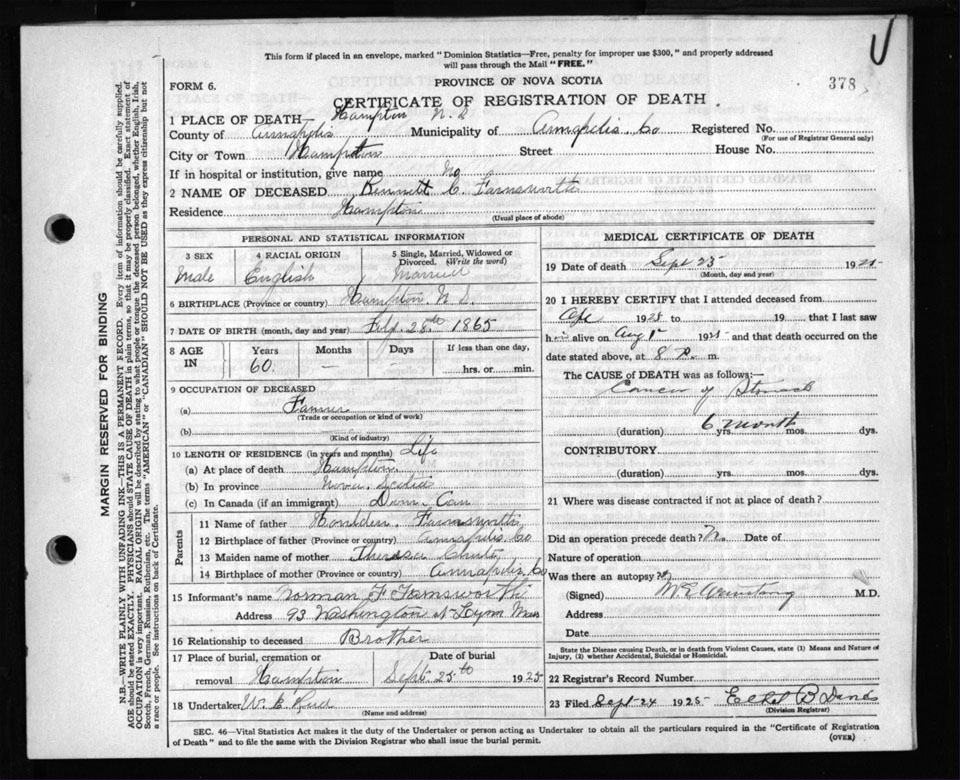 This form if placed in an envelope, marked "Dominion Statistics—Free, penalty for improper use $300," and properly addressed
will pass through the Mail "FREE."
PROVINCE OF NOVA SCOTIA
FORM 6.
378
CERTIFICATE OF REGISTRATION OF DEATH.
1 PLACE OF DEATH— Hampton N.S
County of Annapolis Municipality of Annapolis Co Registered No.
(For use of Registrar General only)
City or Town Hampton Street House No.
If in hospital or institution, give name No
2 NAME OF DECEASED Kennett C. Farnsworth
Residence Hampton
(Usual place of abode)
PERSONAL AND STATISTICAL INFORMATION
3 SEX 4 RACIAL ORIGIN 5 Single, Married, Widowed or Divorced. (Write the word)
Male English Married
6 BIRTHPLACE (Province or country) Hampton N.S.
7 DATE OF BIRTH (month, day and year) 28th 1865
8 AGE IN Years Months Days If less than one day,
60 — hrs. or min.
9 OCCUPATION OF DECEASED
(a) Farmer
(Trade or occupation or kind of work)
(b)
(Kind of industry)
10 LENGTH OF RESIDENCE (in years and months) Life
(a) At place of death Hampton
(b) In province Nova Scotia
(c) In Canada (if an immigrant) Dom. Can
Parents
11 Name of father Farnsworth
12 Birthplace of father (Province or country) Annapolis Co
13 Maiden name of mother Theresa
14 Birthplace of mother (Province or country) Annapolis Co
15 Informant's name Norman F Farnsworth
Address 93 Washington St Lynn Mass
16 Relationship to deceased Brother
17 Place of burial, cremation or removal Date of burial
Hampton Sept. 25th 1925
18 Undertaker W. E.
(Name and address)
MEDICAL CERTIFICATE OF DEATH
19 Date of death Sept 23 1925
(Month, day and year)
20 I HEREBY CERTIFY that I attended deceased from
1925 to 19 that I last saw
him alive on Aug 1925 and that death occurred on the
date stated above, at 8 P. m.
The CAUSE of DEATH was as follows:
Cancer of Stomach
6 month
(duration) yrs. mos. dys.
CONTRIBUTORY
(duration) yrs. mos. dys.
21 Where was disease contracted if not at place of death?
Did an operation precede death? No Date of
Nature of operation
Was there an autopsy? no
(Signed) M E Armstrong M.D.
Address
Date
State the Disease causing Death, or in death from Violent Causes, state (1) Means and Nature of
Injury, (2) whether Accidental, Suicidal or Homicidal.
22 Registrar's Record Number
23 Filed Sept 24 1925 B
(Division Registrar)
SEC. 46—Vital Statistics Act makes it the duty of the Undertaker or person acting as Undertaker to obtain all the particulars required in the "Certificate of Registration
of Death" and to file the same with the Division Registrar who shall issue the burial permit.
(OVER)
MARGIN RESERVED FOR BINDING
N.B.—WRITE PLAINLY WITH UNFADING INK—THIS IS A PERMANENT RECORD. Every item of information should be carefully supplied.
AGE should be stated EXACTLY. PHYSICIANS should STATE CAUSE OF DEATH in plain terms, so that it may be properly classified. Exact statement of
OCCUPATION is very important. RACIAL ORIGIN will be described by stating to what people or tongue the deceased person belonged, whether English, Irish,
Scotch, French, German, Russian, Ruthenian, etc. The terms "AMERICAN" or "CANADIAN" SHOULD NOT BE USED as they express citizenship but not
a race or people. See instructions on back of Certificate.